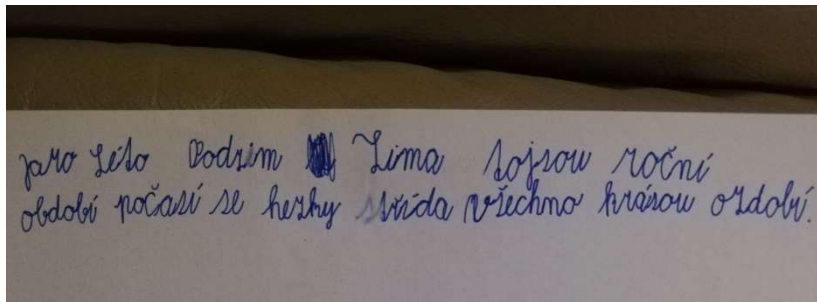 jaro Léto Podzim Zima tojsou roční
období počasí se hezky střída všechno krásou ozdobí.